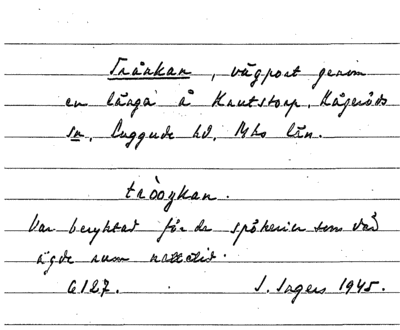 Trånkan, vägport genom
en länga å Knutstorp, Kågeröds
sn, Luggude hd, Mhs län.
tròoŋkan.
Var beryktad för de spökerier som där
ägde rum nattetid.
6127. I. Ingers 1945.